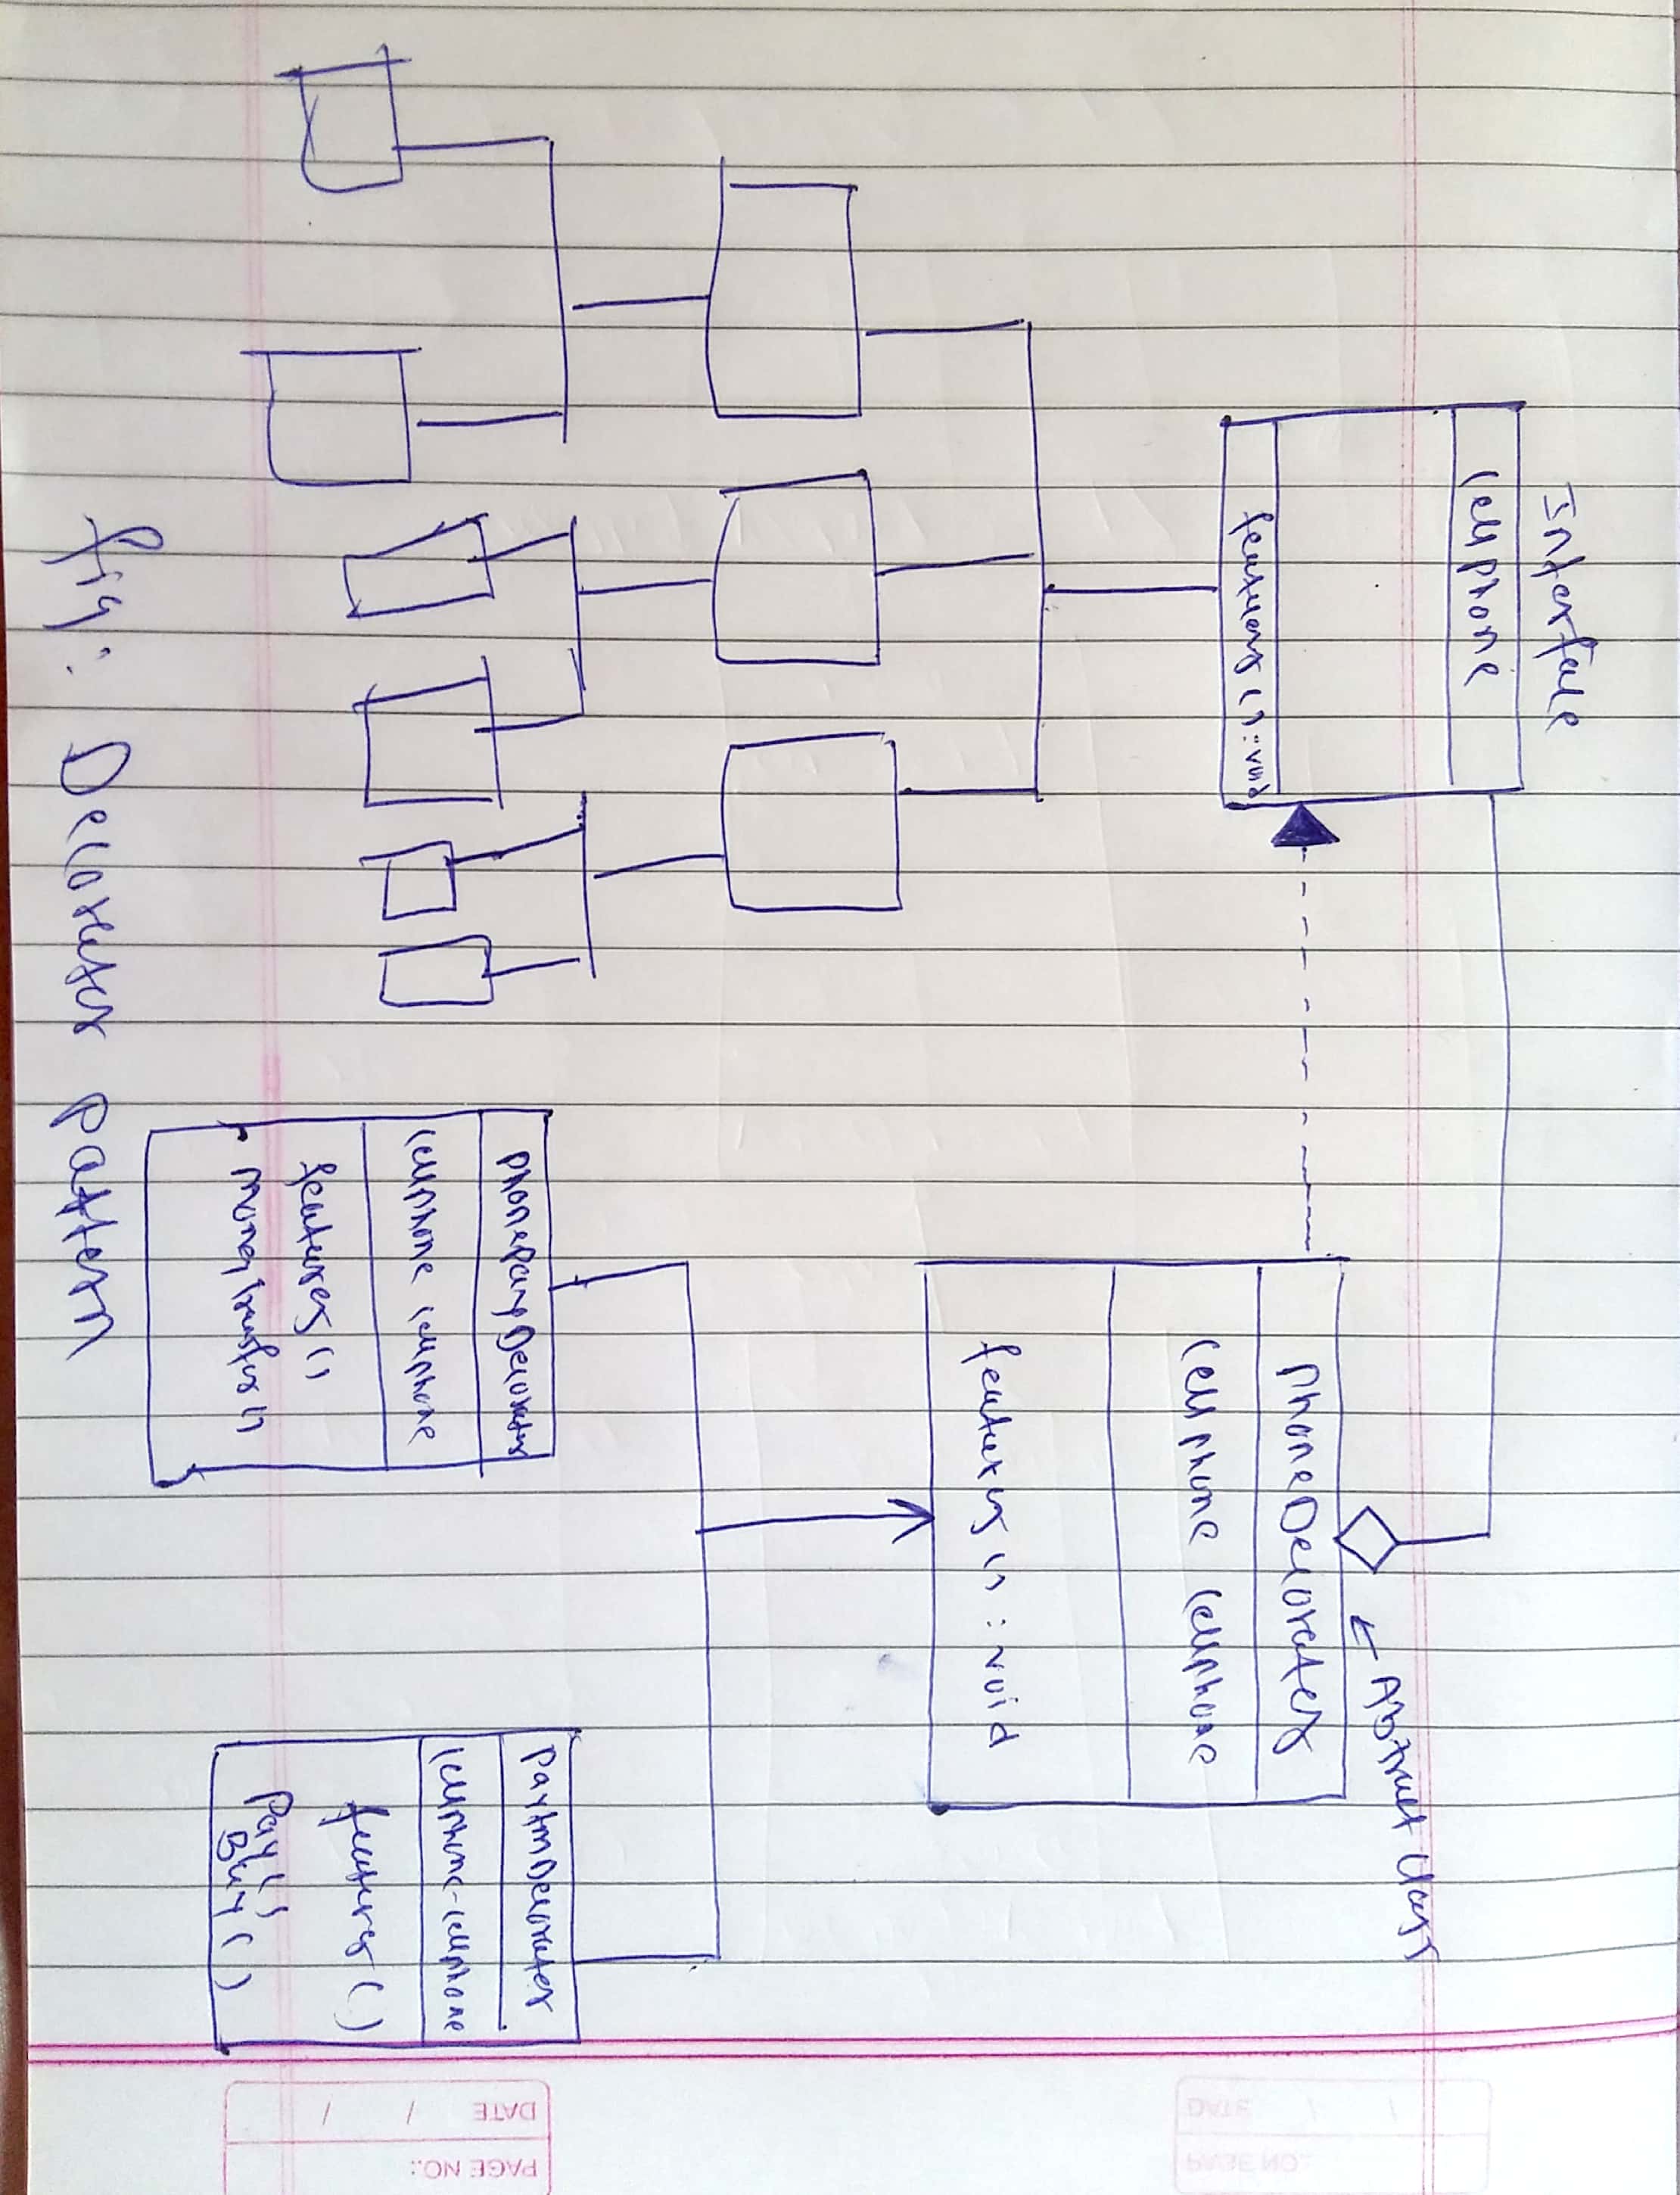 Interface
Cellphone
features () : void
← Abstract Class
PhoneDecorater
Cellphone Cellphone
features () : void
PhonepayDecorater
Cellphone Cellphone
features ()
moneyTransfer ()
PaytmDecorater
Cellphone-Cellphone
features ()
Pay ()
Buy ()
fig: Decorater Pattern
DATE / /
PAGE NO.:
DATE / /
PAGE NO.: